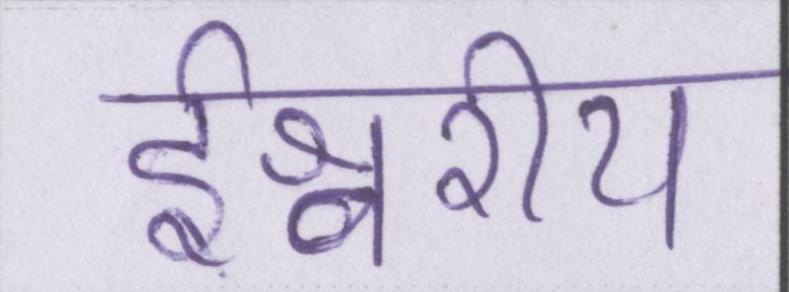 ईश्वरीय